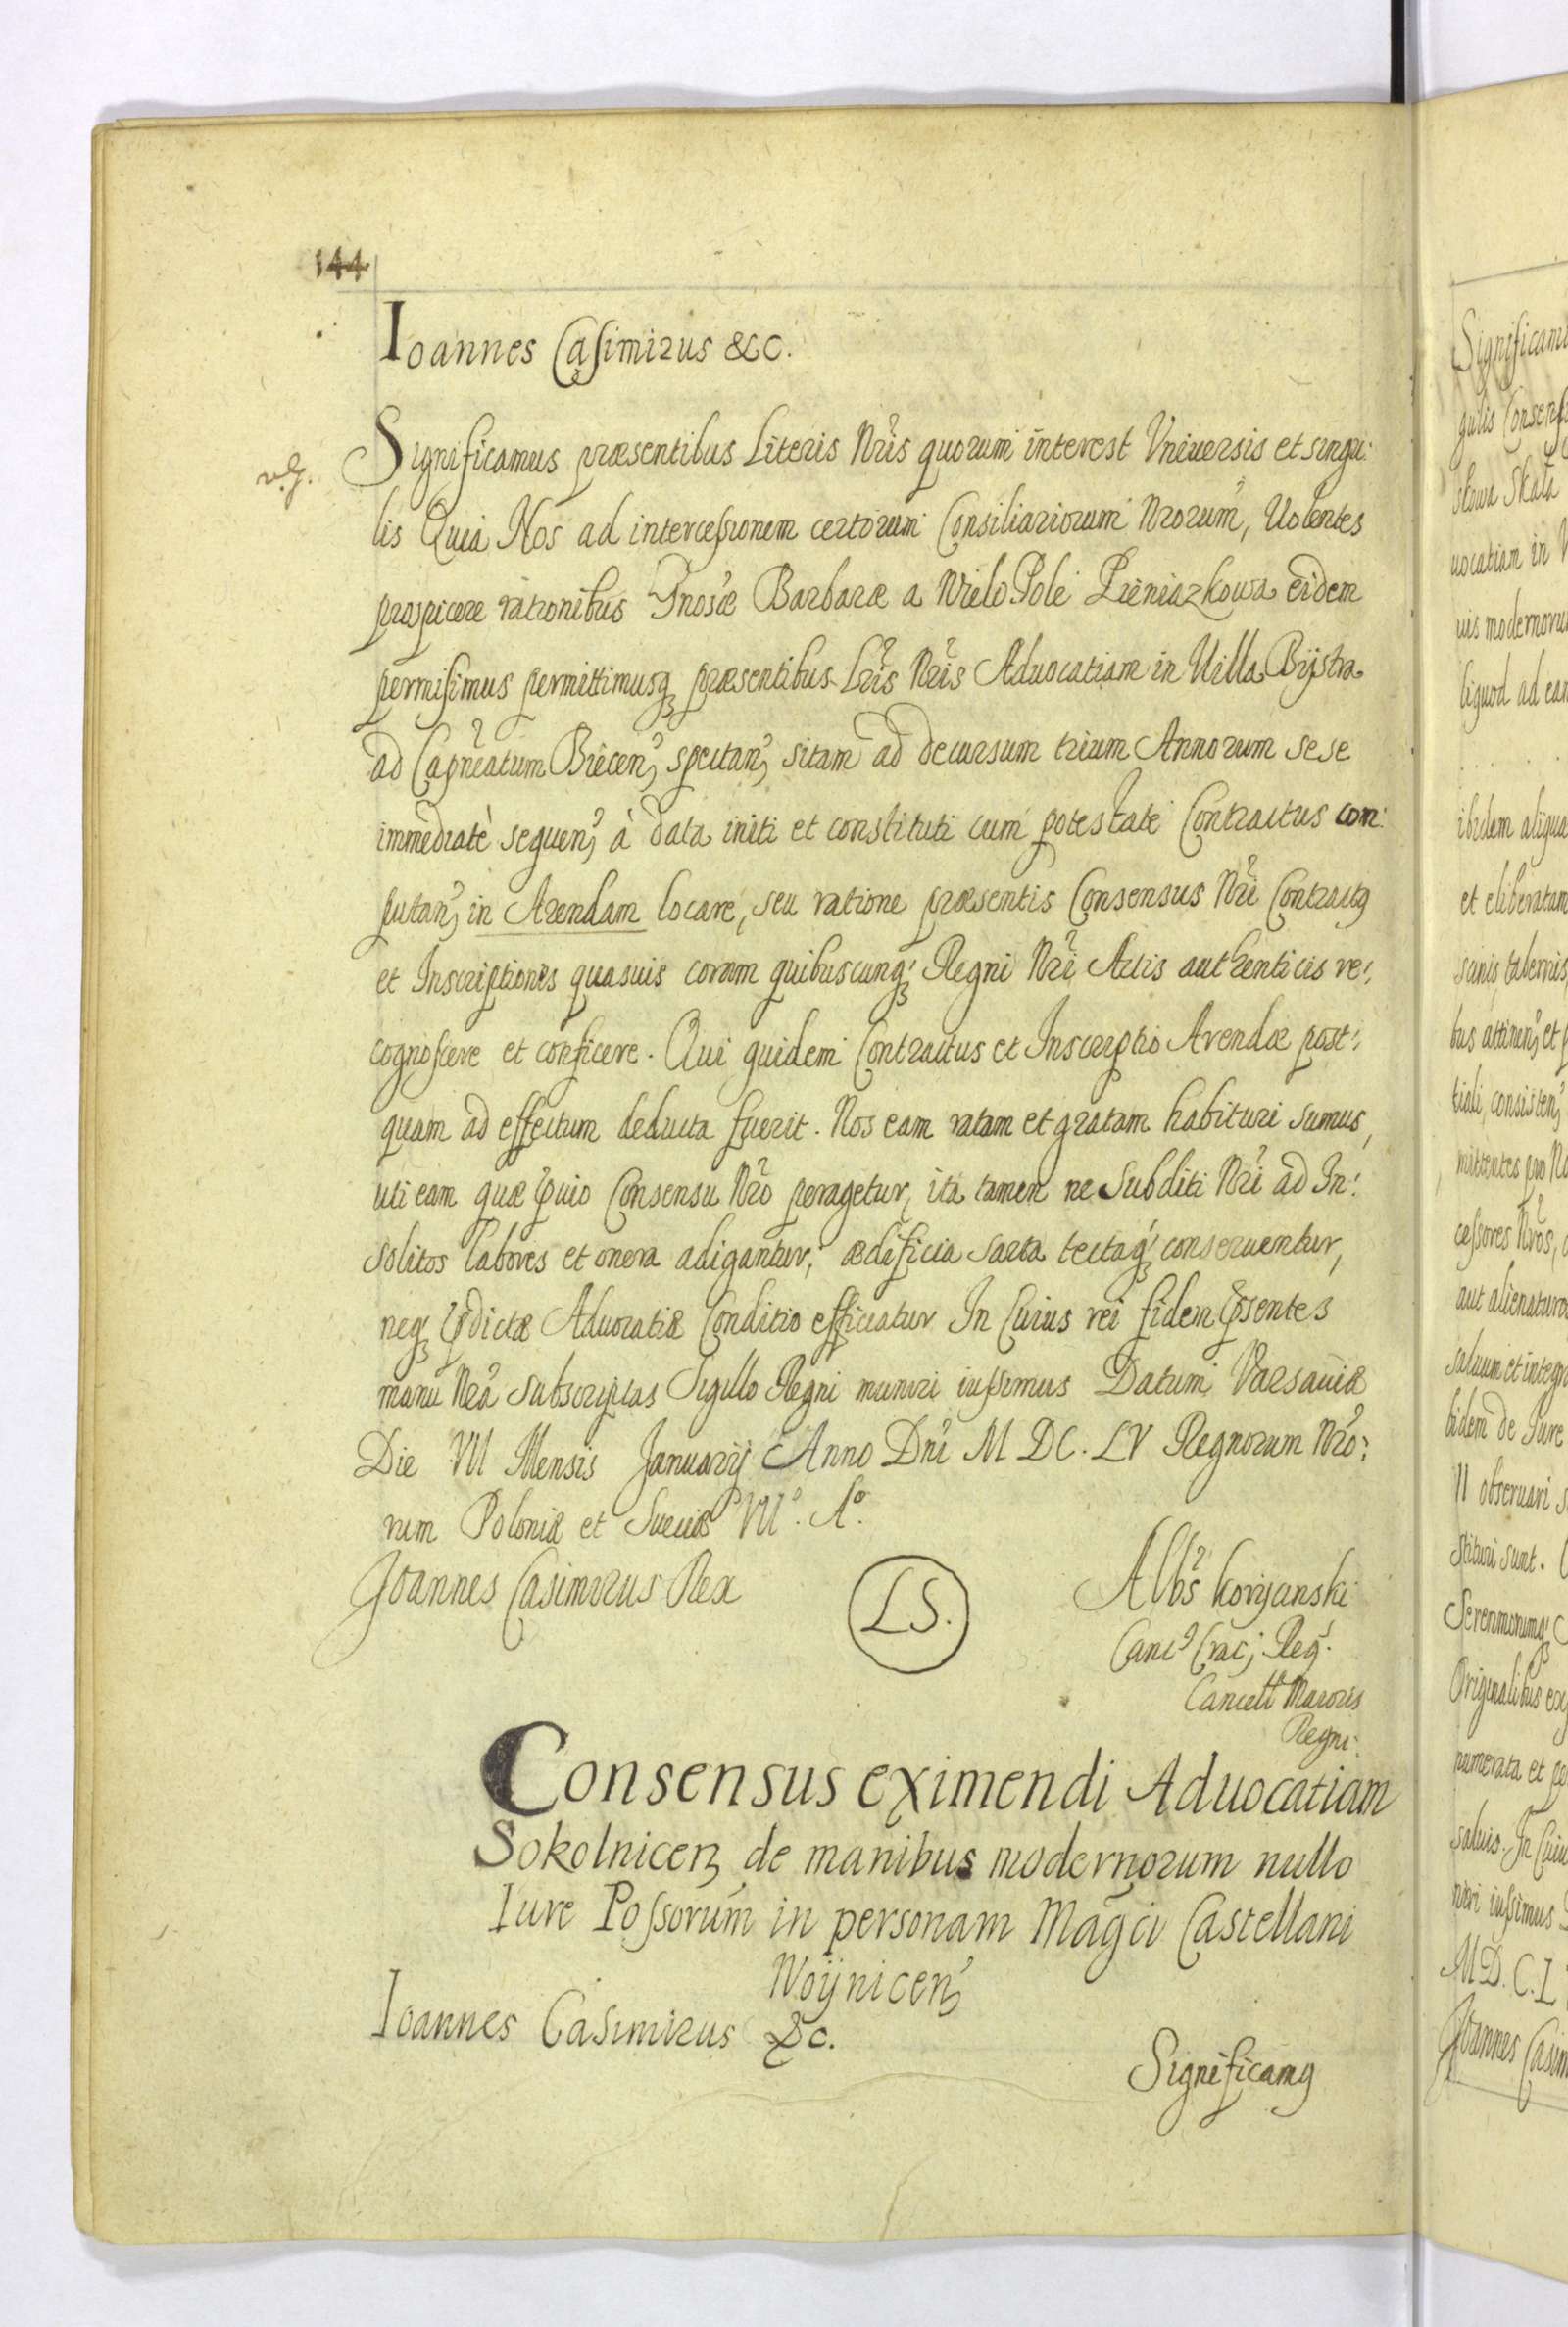 144
Ioannes Casimirus &c.
v.g.
Significamus præsentibus Literis Nris quorum interest Vniuersis et singu:
lis Quia Nos ad intercessionem certorum Consiliariorum Nrorum, Uolentes
prospicere rationibus Gnosæ Barbaræ a Wielo Pole Pieniazkowa eidem
permisimus permittimusq præsentibus Lris Nris Aduocatiam in Uilla Bystra
ad Capneatum Biecen, spectan, sitam ad decursum trium Annorum sese
immediatè sequen, à data initi et constituti cum potestate Contractus com:
putan, in Arendam locare, seu ratione præsentis Consensus Nri Contractq
et Inscriptiones quasuis coram quibuscunq Regni Nri Actis authenticis re:
cognoscere et conficere. Qui quidem Contractus et Inscriptio Arendæ post:
quam ad effectum deducta fuerit. Nos eam ratam et gratam habituri sumus,
uti eam quæ puio Consensu Nro peragetur, ita tamen ne Subditi Nri ad In:
solitos labores et onera adigantur, ædificia sarta tectaq conseruentur,
neq pdictæ Aduocatiæ Conditio efficiatur In Cuius rei fidem psentes
manu Nra subscriptas Sigillo Regni muniri iussimus Datum Varsauiæ
Die VII Mensis Januarij Anno Dni M DC. LV Regnorum Nro:
rum Poloniæ et Sueciæ VII°. A°.
Joannes Casimirus Rex
L S.
Albs Koryanski
Canc Crac; Reg.
Cancell Maioris
Regni.
Consensus eximendi Aduocatiam
Sokolnicen de manibus modernorum nullo
Iure Possorum in personam Magci Castellani
Woynicen
Ioannes Casimirus &c.
Significamq
Significam
gulis Consens
skowa Skala
uocatiam in
uis modernoru
liquod ad ean
ibidem aliqua
et eliberatam
tabernis
bus attinen, et
tiali, consisten,
mittentes pro No
cessores Nros,
aut alienaturos
saluum et integr
bidem de Jure
observari
stituri sunt.
Serenmorumq
Originalibus
numerata et
saluis. In Cuiu
niri iussimus
M D. C. L
Joannes Casim